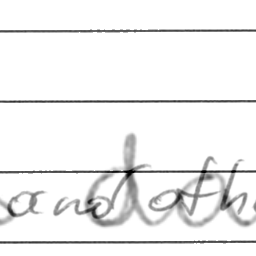 and oth